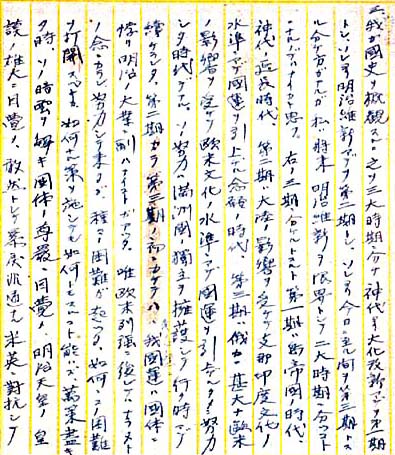 我ガ国史ヲ概観スルニ之ヲ三大時期ニ分ケ神代ヨリ大化改新マデヲ第一期
トシ、ソレヨリ明治維新マデヲ第二期トシ、ソレヨリ今日ニ至ル間ヲ第三期トス
ル分ケ方ガアルガ私ハ将来明治維新ヲ限界トシテ二大時期ニ分ツコト
ニナルノデハナイカト思フ。右ノ三期ニ分ケルトスルト第一期ハ島帝国時代、
神代ノ延長時代、第二期大陸ノ影響ヲ受ケテ支那印度文化ノ
水準マデ國運ヲ引上ゲル念願ノ時代、第三期ハ俄カニ甚大ナ歐米
ノ影響ヲ受ケ欧米文化ノ水準マデ國運ヲ引上ゲルタメニ努力
シタ時代デアル。ソノ努力ハ満洲國ノ獨立ヲ擁護シテ行ク時マデ
續ケラレタ。第二期カラ第三期ノ ニカケテハ我國運ハ國体ニ
悖リ明治ノ大業ニ副ハナイ ガアツタ。唯欧米列強ニ後レマイトスル
ノ念ニカラレ努力シテ来タガ、種々ノ困難ガ起ツタ。如何ニシテ困難
ヲ打開スベキカ如何ナル策ヲ施シテモ如何トモスルコト能ハズ萬策盡キ
タ時、ソノ時 國体ノ尊嚴ニ目覺メ、明治天皇ノ皇
謨ノ雄大ニ目覺メ、敢然トシテ 米英ニ對抗シテ